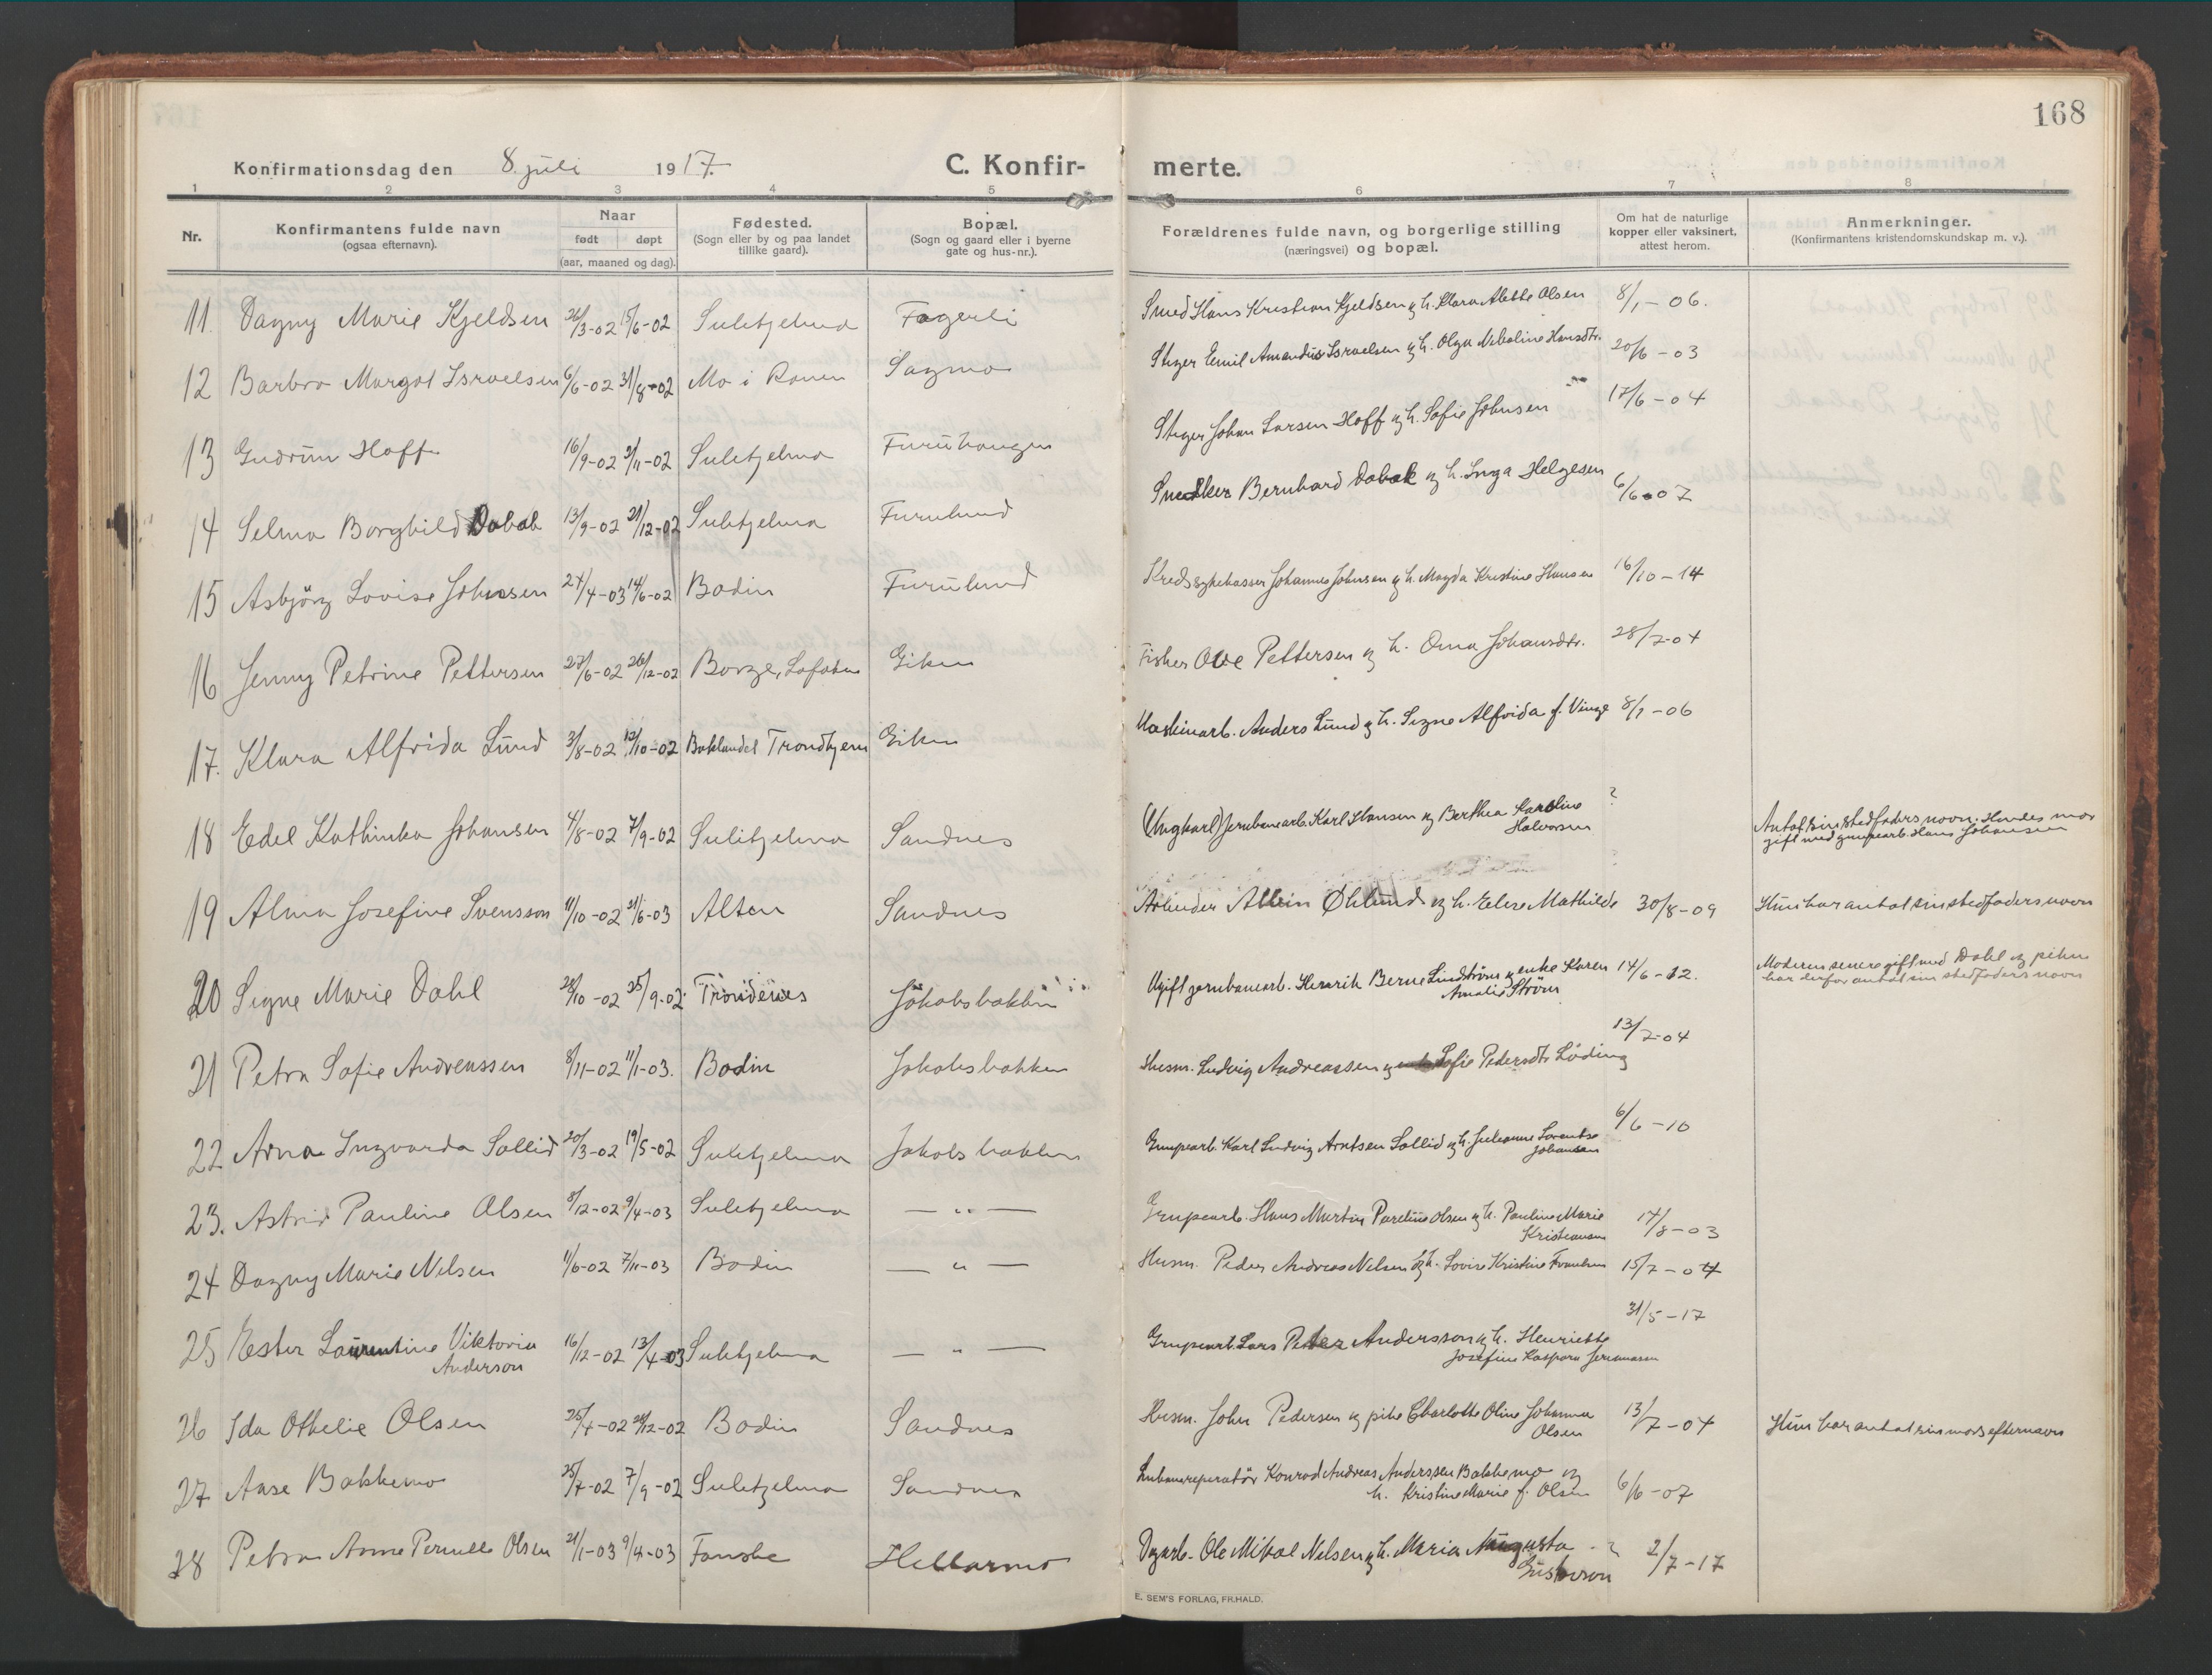 168
Konfirmationsdag den 8. juli 1917. C. Konfir- merte.
1 2 3 4 5 6 7 8
Nr. Konfirmantens fulde navn (ogsaa efternavn). Naar født døpt (aar, maaned og dag). Fødested. (Sogn eller by og paa landet tillike gaard). Bopæl. (Sogn og gaard eller i byerne gate og hus-nr.). Forældrenes fulde navn, og borgerlige stilling (næringsvei) og bopæl. Om hat de naturlige kopper eller vaksinert, attest herom. Anmerkninger. (Konfirmantens kristendomskundskap m. v.).
11. Dagny Marie Kjeldsen 26/3-02 15/6-02 Sulitjelma Fagerli Smed Hans Kristian Kjeldsen og h. Klara Alette Olsen 8/1-06.
12 Barbro Margot Israelsen 6/6-02 31/8-02 Mo i Ranen Sagmo Stiger Emil Amandus Israelsen og h. Olga Nikoline Hansdtr. 20/6-03
13 Gudrun Hoff 16/9-02 2/11-02 Sulitjelma Furuhaugen Stiger Johan Larsen Hoff og h. Sofie Johnsen 17/6-04
14 Selma Borghild Dabak 13/9-02 21/12-02 Sulitjelma Furulund Snedker Bernhard Dabak og h. Inga Helgesen 6/6-07
15 Asbjörg Lovise Johnsen 27/4-03 14/6-02 Bodin Furulund Kredssykekasser Johannes Johnsen og h. Magda Kristine Hansen 16/10-14
16 Jenny Petrine Pettersen 27/6-02 26/12-02 Borge, Lofoten Giken Fisker Ove Pettersen og h. Oma Johansdtr. 28/7-04
17. Klara Alfrida Lund 3/8-02 12/10-02 Baklandet Trondhjem Giken Maskinarb. Anders Lund og h. Signe Alfrida f. Vinge 8/1-06
18 Edel Kathinka Johansen 4/8-02 7/9-02 Sulitjelma Sandnes (Ungkarl) Jernbanearb. Karl Hansen og Berthea Karoline ? Antat sin stedfaders navn. Hendes mor
Halvorsen gift med grupearb. Hans Johansen
19 Alma Josefine Svensson 11/10-02 21/6-03 Alten Sandnes Arbeider Albin Öhlund og h. Elese Mathilde 30/8-09 Hun har antat sin stedfaders navn
20 Signe Marie Dahl 28/10-02 25/9-02 Trondenes Jakobsbakken Ugift jernbanearb. Henrik Berne Lindström og enke Karen 14/6-12. Moderen senere gift med Dahl og piken
Amalie Ström har derfor antat sin stedfaders navn
21 Petra Sofie Andreassen 8/11-02 11/1-03. Bodin Jakobsbakken Husm. Ludvig Andreassen og Sofie Pedersdtr Löding 13/7-04
22 Arna Ingvarda Sollid 20/3-02 19/5-02 Sulitjelma Jakobsbakken Grupearb. Karl Ludvig Arntsen Sollid og h. Julianne Lorentse 6/6-10
Johansen
23. Astrid Pauline Olsen 8/12-02 9/4-03 Sulitjelma — „ — Grupearb. Hans Martin Parelius Olsen og h. Pauline Marie 17/8-03
Kristiansen
24 Dagny Marie Nilsen 11/6-02 7/11-03 Bodin — „ — Husm. Peder Andreas Nilsen og h. Lovise Kristine Frantsen 15/7-04
25 Ester Laurentine Viktoria 16/12-02 13/4-03 Sulitjelma — „ — Grupearb. Lars Petter Andersson og h. Henriette 31/5-17
Anderson Josefine Kaspara Jeremiassen
26 Ida Othelie Olsen 25/4-02 26/12-02 Bodin Sandnes Husm. John Pedersen og pike Charlotte Oline Johanna 13/7-04 Hun har antat sin mors efternavn
Olsen
27 Aase Bakkemo 25/7-02 7/9-02 Sulitjelma Sandnes Linbanereparatör Konrad Andreas Anderssen Bakkemo og 6/6-07
h. Kristine Marie f. Olsen
28 Petra Anne Pernille Olsen 21/1-03 9/4-03 Fauske Hellarmo Dagarb. Ole Mikal Nilsen og h. Maria Augusta ? 2/7-17
Gustavson
E. SEM'S FORLAG, FR.HALD.